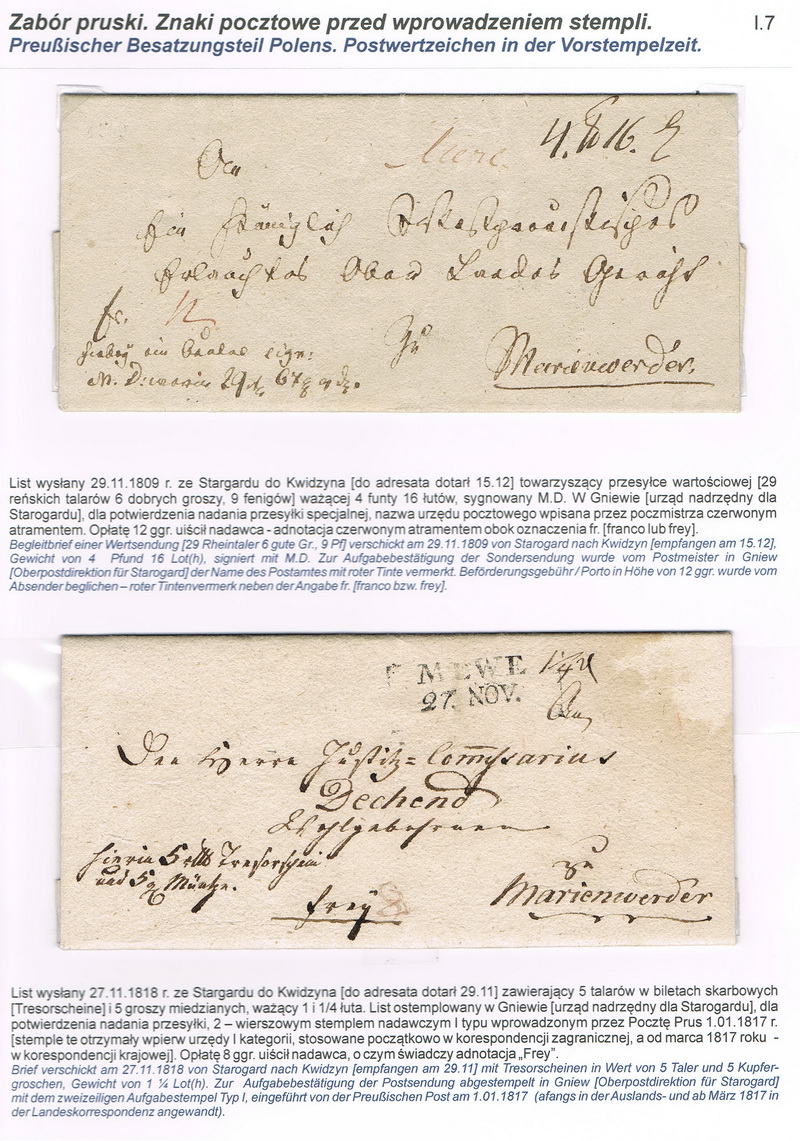 Zabór pruski. Znaki pocztowe przed wprowadzeniem stempli. I.7
Preußischer Besatzungsteil Polens. Postwertzeichen in der Vorstempelzeit.
4. 16.
An
Ein Königlich Westpreussisches
Erlauchtes Ober Landes Gericht
fr. 12
Zu
Marienwerder.
List wysłany 29.11.1809 r. ze Stargardu do Kwidzyna [do adresata dotarł 15.12] towarzyszący przesyłce wartościowej [29
reńskich talarów 6 dobrych groszy, 9 fenigów] ważącej 4 funty 16 łutów, sygnowany M.D. W Gniewie [urząd nadrzędny dla
Starogardu], dla potwierdzenia nadania przesyłki specjalnej, nazwa urzędu pocztowego wpisana przez poczmistrza czerwonym
atramentem. Opłatę 12 ggr. uiścił nadawca - adnotacja czerwonym atramentem obok oznaczenia fr. [franco lub frey].
Begleitbrief einer Wertsendung [29 Rheintaler 6 gute Gr., 9 Pf] verschickt am 29.11.1809 von Starogard nach Kwidzyn [empfangen am 15.12],
Gewicht von 4 Pfund 16 Lot(h), signiert mit M.D. Zur Aufgabebestätigung der Sondersendung wurde vom Postmeister in Gniew
[Oberpostdirektion für Starogard] der Name des Postamtes mit roter Tinte vermerkt. Beförderungsgebühr / Porto in Höhe von 12 ggr. wurde vom
Absender beglichen – roter Tintenvermerk neben der Angabe fr. [franco bzw. frey].
MEWE 1 1/4
27. NOV.
An
Den Herrn Justitz= Commssarius
Dechend
Wohlgebohrnen
hierin 5 rtl Tresorschein
und 5 g Müntze.
zu
frey Marienwerder
List wysłany 27.11.1818 r. ze Stargardu do Kwidzyna [do adresata dotarł 29.11] zawierający 5 talarów w biletach skarbowych
[Tresorscheine] i 5 groszy miedzianych, ważący 1 i 1/4 łuta. List ostemplowany w Gniewie [urząd nadrzędny dla Starogardu], dla
potwierdzenia nadania przesyłki, 2 – wierszowym stemplem nadawczym I typu wprowadzonym przez Pocztę Prus 1.01.1817 r.
[stemple te otrzymały wpierw urzędy I kategorii, stosowane początkowo w korespondencji zagranicznej, a od marca 1817 roku -
w korespondencji krajowej]. Opłatę 8 ggr. uiścił nadawca, o czym świadczy adnotacja „Frey”.
Brief verschickt am 27.11.1818 von Starogard nach Kwidzyn [empfangen am 29.11] mit Tresorscheinen in Wert von 5 Taler und 5 Kupfer-
groschen, Gewicht von 1 ¼ Lot(h). Zur Aufgabebestätigung der Postsendung abgestempelt in Gniew [Oberpostdirektion für Starogard]
mit dem zweizeiligen Aufgabestempel Typ I, eingeführt von der Preußischen Post am 1.01.1817 (afangs in der Auslands- und ab März 1817 in
der Landeskorrespondenz angewandt).